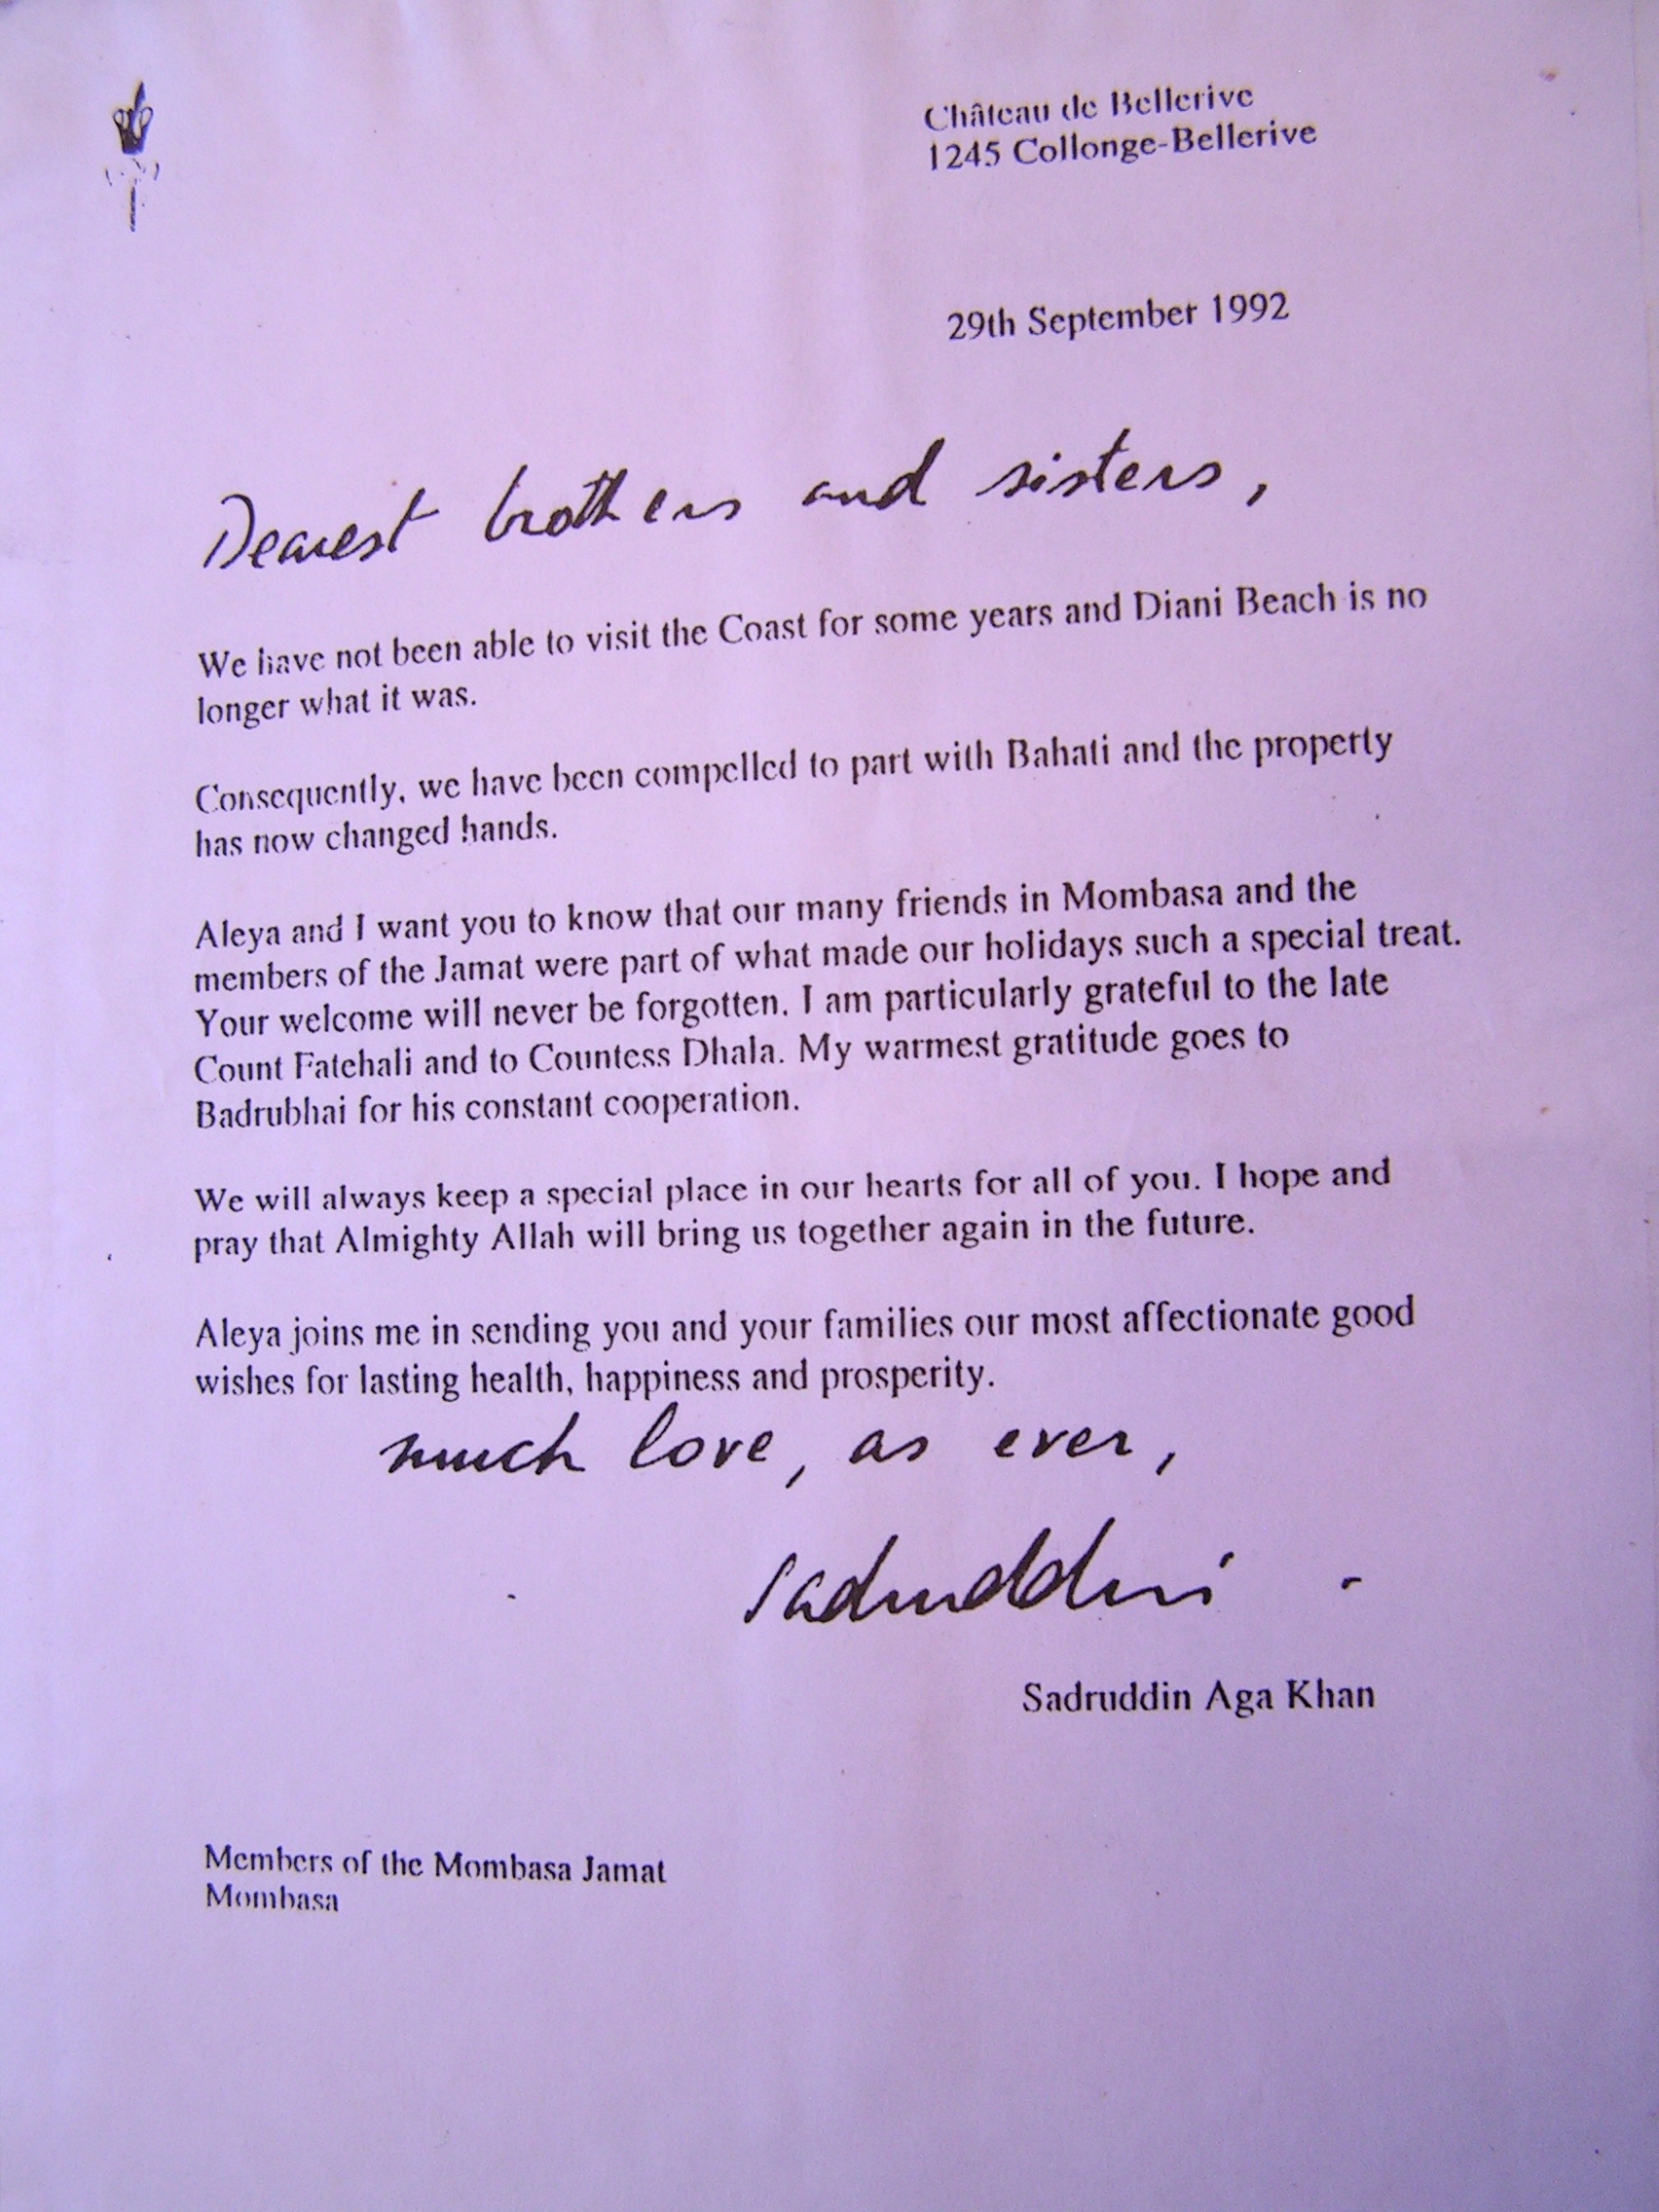 Château de Bellerive
1245 Collonge-Bellerive
29th September 1992
Dearest brothers and sisters,
We have not been able to visit the Coast for some years and Diani Beach is no
longer what it was.
Consequently, we have been compelled to part with Bahati and the property
has now changed hands.
Aleya and I want you to know that our many friends in Mombasa and the
members of the Jamat were part of what made our holidays such a special treat.
Your welcome will never be forgotten. I am particularly grateful to the late
Count Fatehali and to Countess Dhala. My warmest gratitude goes to
Badrubhai for his constant cooperation.
We will always keep a special place in our hearts for all of you. I hope and
pray that Almighty Allah will bring us together again in the future.
Aleya joins me in sending you and your families our most affectionate good
wishes for lasting health, happiness and prosperity.
much love, as ever,
Sadruddin
Sadruddin Aga Khan
Members of the Mombasa Jamat
Mombasa